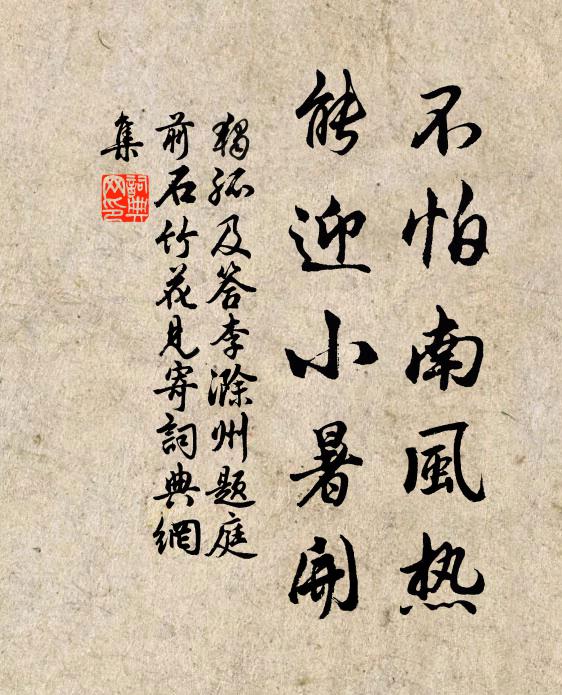 不怕南風热
能迎小暑開
獨孤及答李滁州题庭
前石竹花見寄詞典網
集
詞典
网印